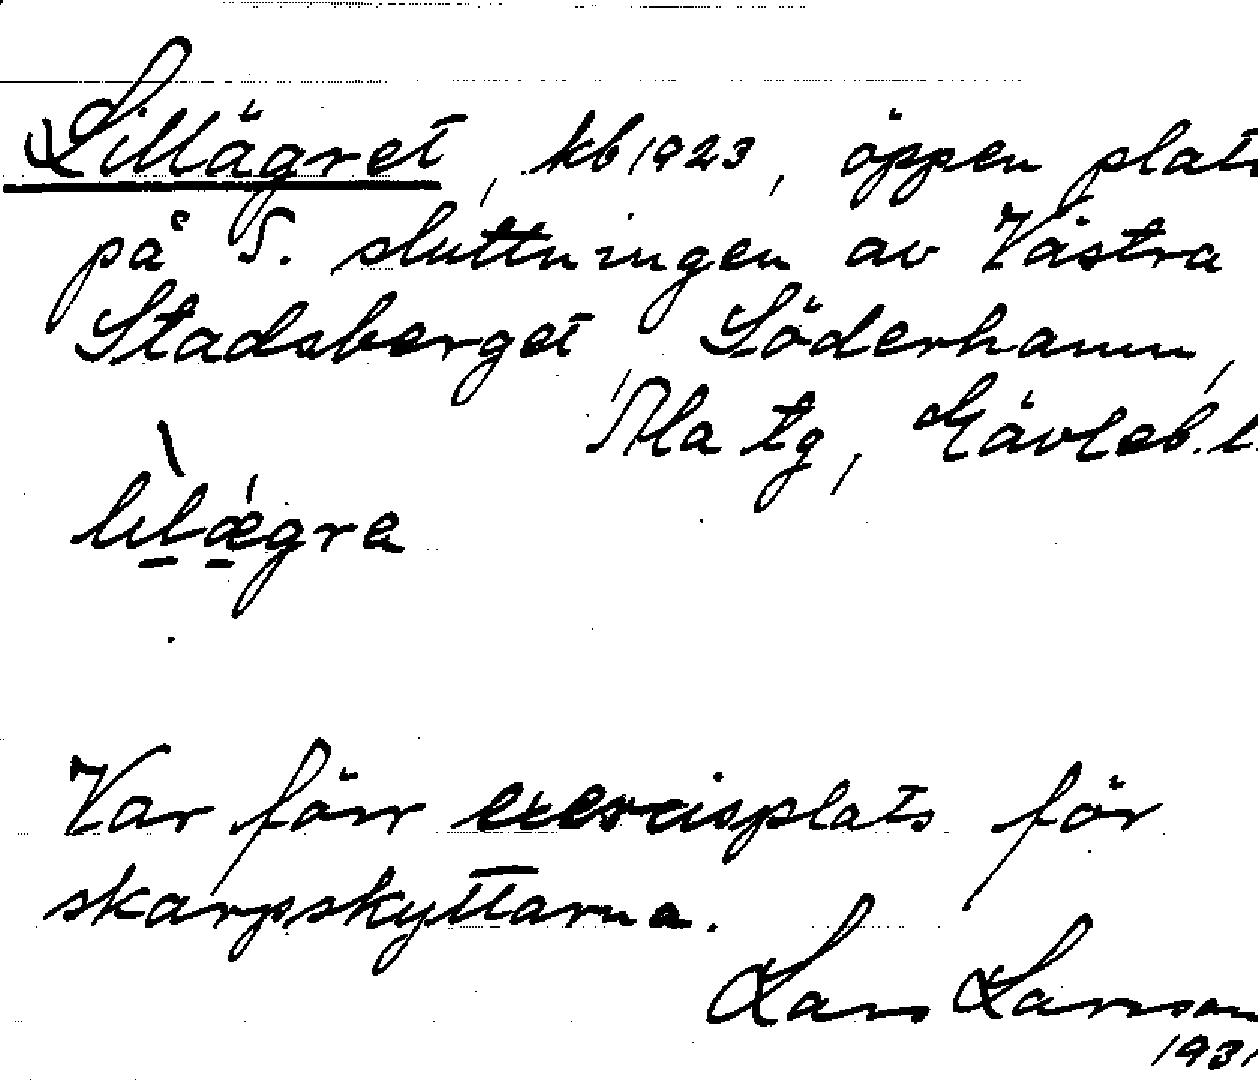 Lillägret, kb 1923, öppen plats
på S. sluttningen av Västra
Stadsberget, Söderhamn,
Ala tg, Gävleb. l.
lilægre
Var förr exercisplats för
skarpskyttarna.
Lars Larsson
1931